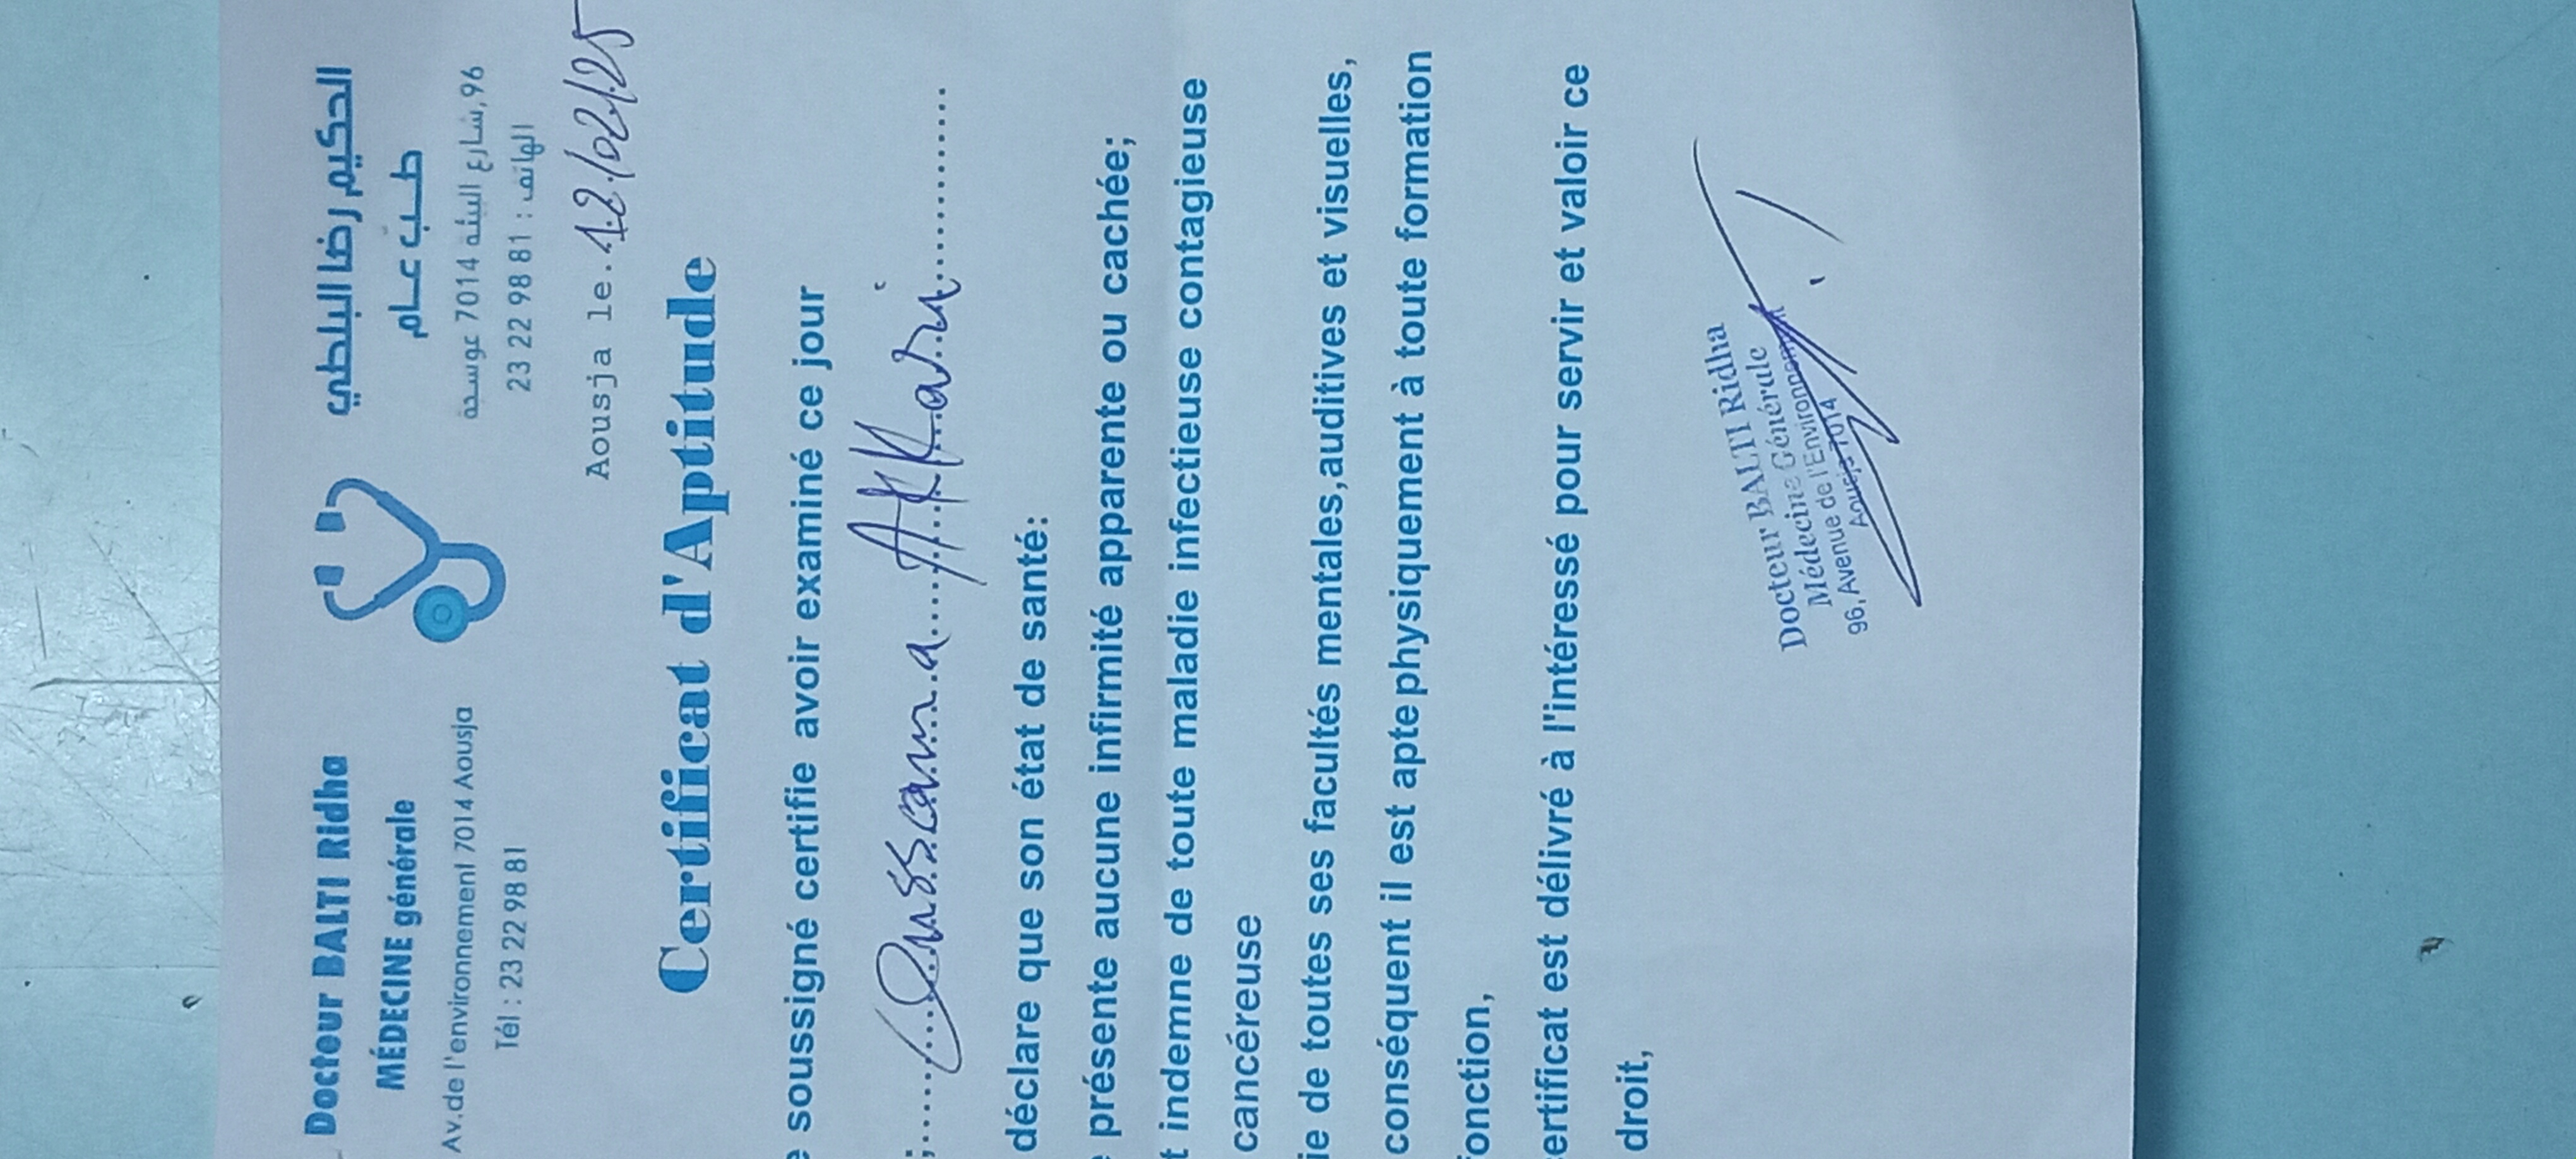 Docteur BALTI Ridha
MÉDECINE générale
Av.de l'environnement 7014 Aousja
Tél : 23 22 98 81
الحكيم رضا البلطي
طـبّ عـام
96,شارع البيئة 7014 عوسجة
الهاتف : 23 22 98 81
Aousja le.12/02/25
Certificat d'Aptitude
soussigné certifie avoir examiné ce jour
Oussama AKKari
déclare que son état de santé:
présente aucune infirmité apparente ou cachée;
t indemne de toute maladie infectieuse contagieuse
cancéreuse
ie de toutes ses facultés mentales,auditives et visuelles,
conséquent il est apte physiquement à toute formation
onction,
ertificat est délivré à l'intéressé pour servir et valoir ce
droit,
Docteur BALTI Ridha
Médecine Générale
96, Avenue de l'Environnement
Aousja 7014